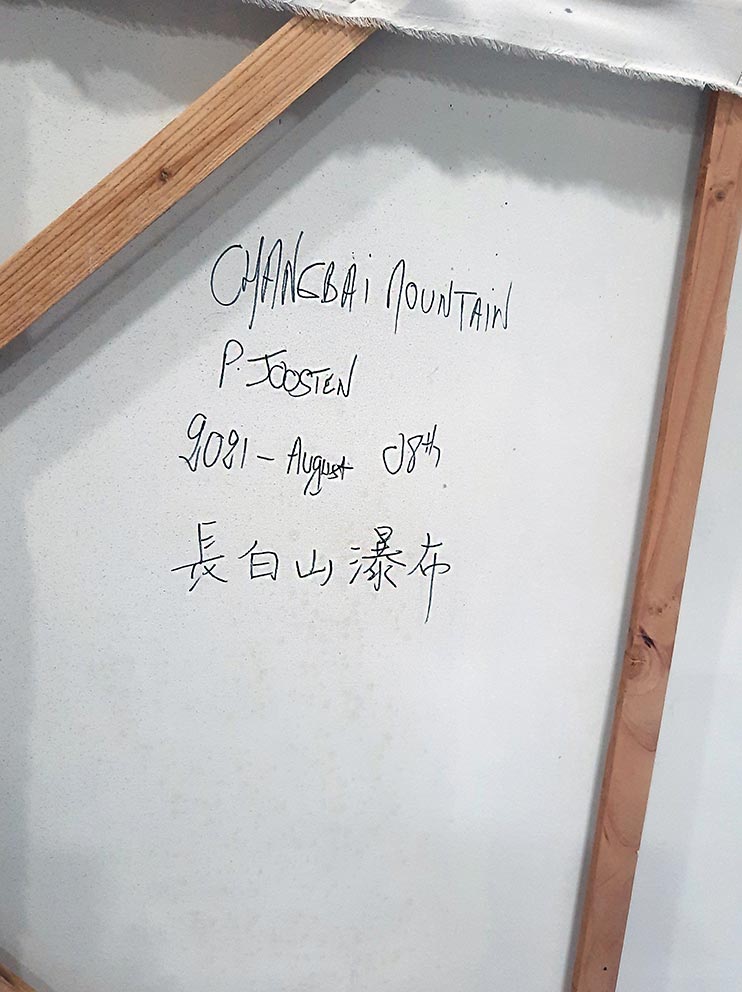 CHANGBAi MOUNTAIN
P. JOOSTEN
2021 - August 08th
長白山瀑布